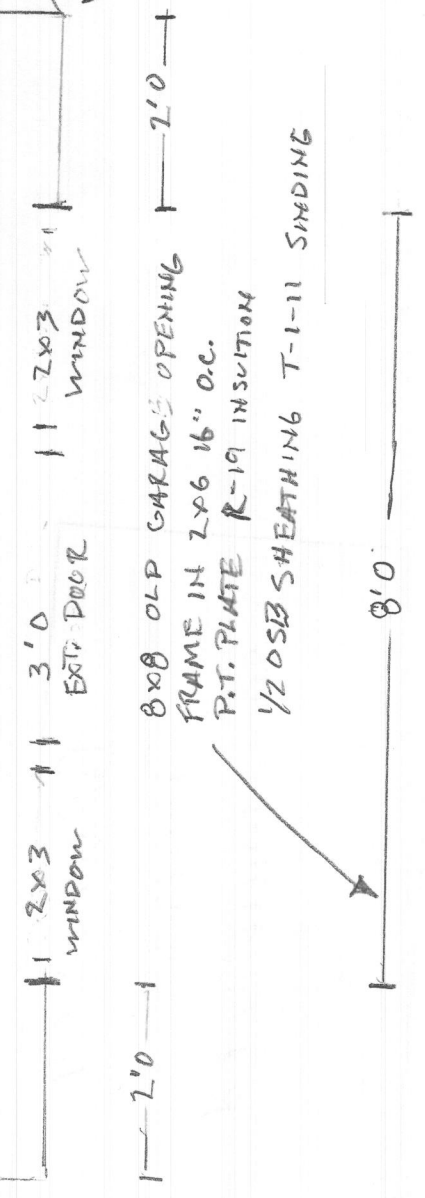 2x3
WINDOW
3'0
EXT. DOOR
2x3
WINDOW
2'0
2'0
8x8 OLD GARAGE OPENING
FRAME IN 2x6 16" O.C.
P.T. PLATE R-19 INSULTION
1/2 OSB SHEATHING T-1-11 SINDING
8'0